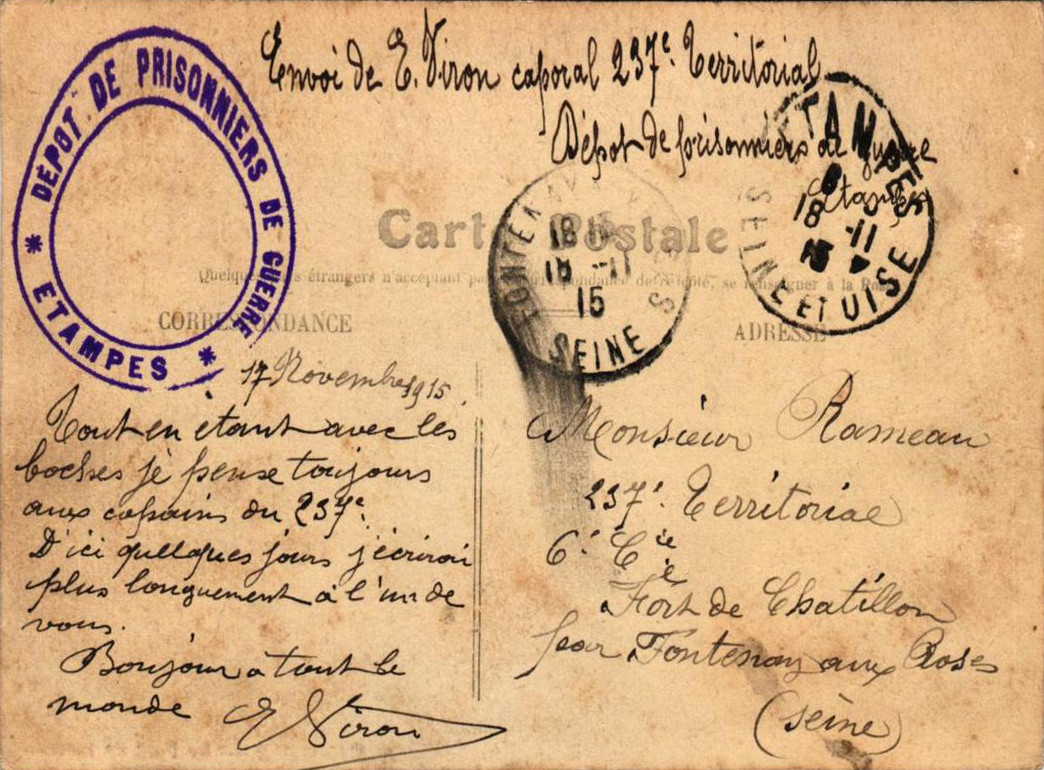 Envoi de E. Viron caporal 237e Territorial
Dépot de prisonniers de guerre
Etampes
DÉPOT DE PRISONNIERS DE GUERRE
* ETAMPES *
ETAMPES
18
18 -11
15
SEINE ET OISE
Carte Postale
18
18 -11
15
SEINE
Quelques étrangers n'acceptant pas correspondance se renseigner à la
CORRESPONDANCE
ADRESSE
17 Novembre 1915.
Tout en etant avec les
boches je pense toujours
aux copains du 237e.
D'ici quelques jours j'ecrirai
plus longuement à l'un de
vous.
Bonjour à tout le
monde
E Viron
Monsieur Rameau
237e Territoriale
6e Cie
Fort de Chatillon
par Fontenay aux Roses
(seine)